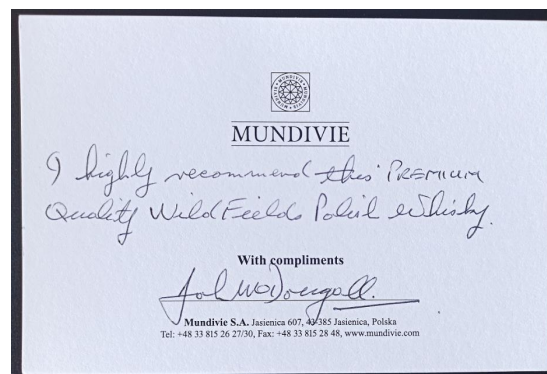 MUNDIVIE
I highly recommend this PREMIUM
Quality Wild Fields Polish Whisky.
With compliments
John McDougall.
Mundivie S.A. Jasienica 607, 43-385 Jasienica, Polska
Tel: +48 33 815 26 27/30, Fax: +48 33 815 28 48, www.mundivie.com